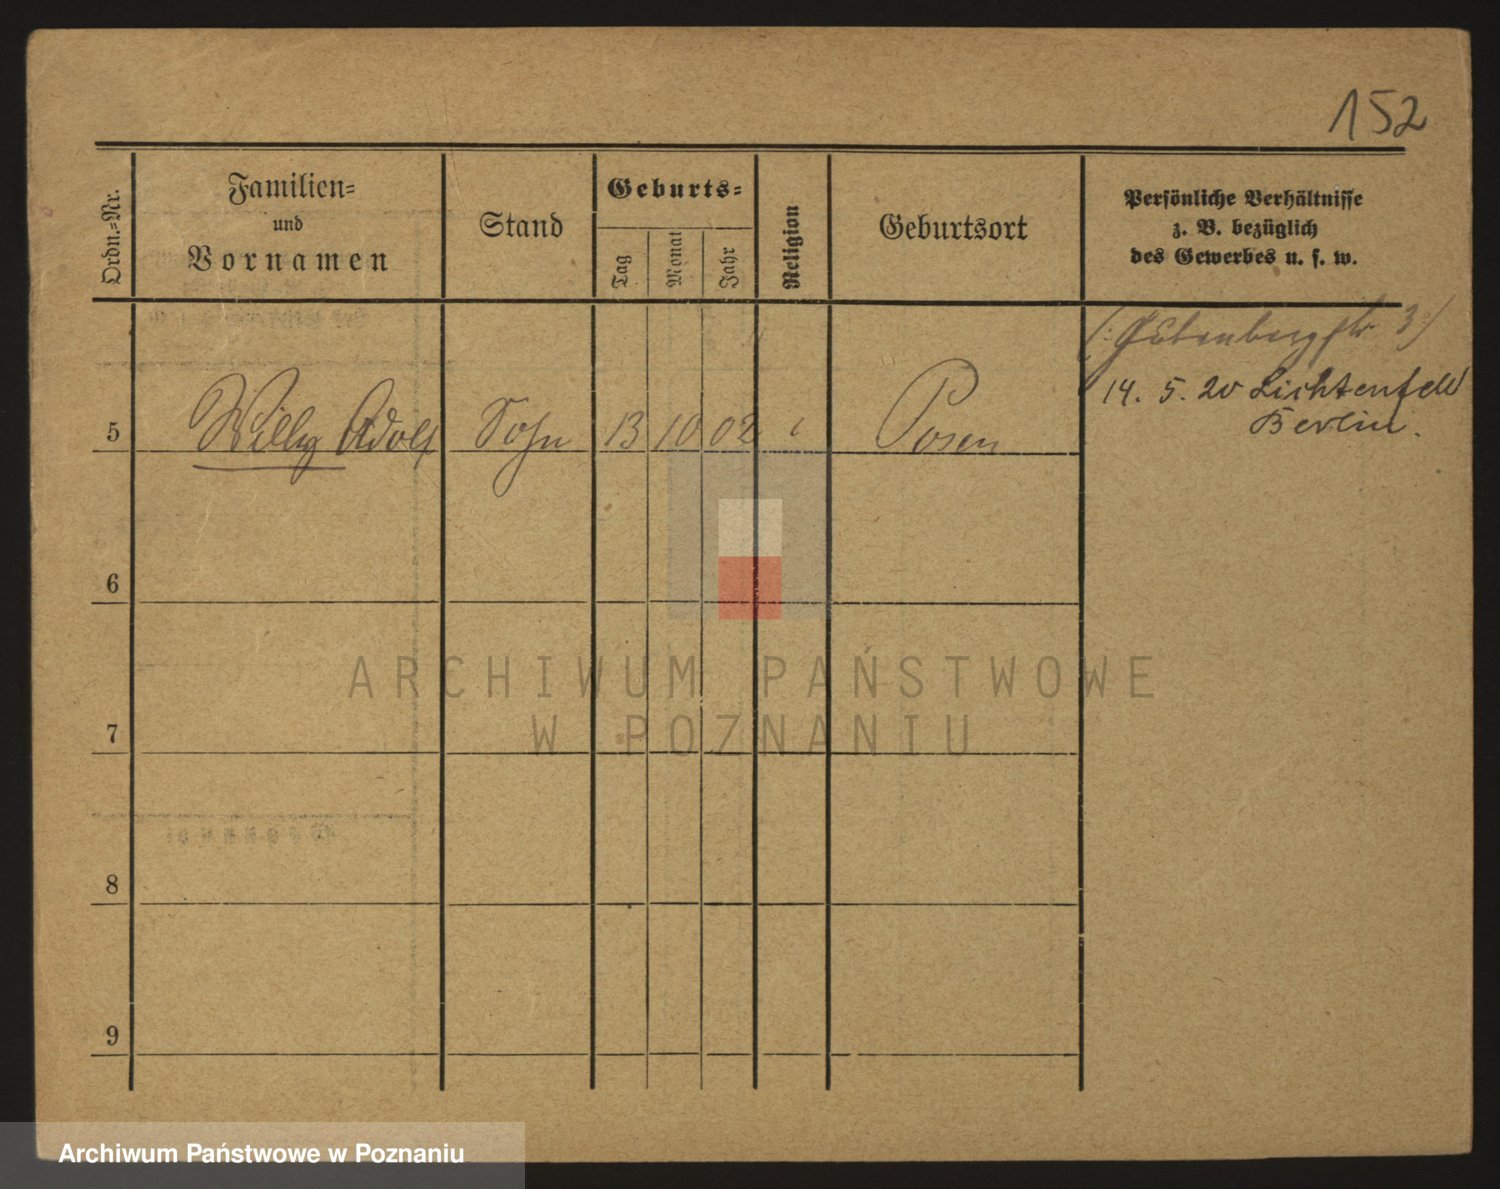 152
Ordn.-Nr.
Familien-
und
Vornamen
Stand
Geburts-
Tag
Monat
Jahr
Religion
Geburtsort
Persönliche Verhältnisse
z. B. bezüglich
des Gewerbes u. s. w.
(: Gutenbergstr 3 :)
14. 5. 20 Lichtenfeld
Berlin.
5 Willy Adolf Sohn 13 10 02 Posen
6
7
8
9
ARCHIWUM PAŃSTWOWE
W POZNANIU
Archiwum Państwowe w Poznaniu